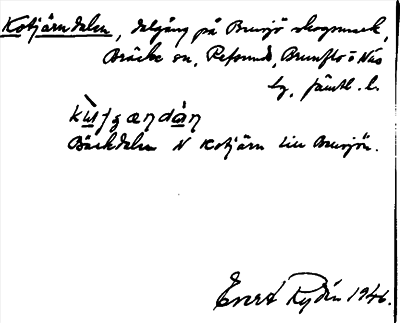 Kotjärndalen, dalgång på Bensjö skogsmark,
Bräcke sn, Refsunds, Brunflo o Näs
tg, Jämtl. l.
Bäckdalen N Kotjärn till Bensjön.
Evert Rydén 1946.